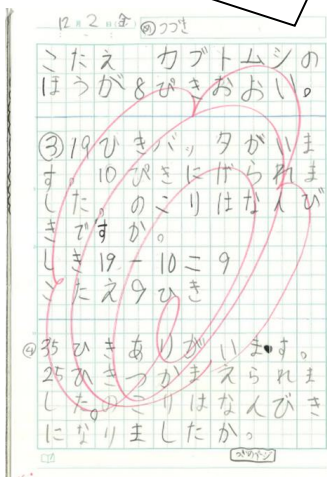 12月2(金) ②つづき
こたえ カブトムシの
ほうが8ぴきおおい。
③19ひきバッタがいま
す。10ぴきにげられま
した。のこりはなんび
きですか。
しき19-10=9
こたえ9ひき
④35ひきありがいます。
25ひきつかまえられま
した。のこりはなんびき
になりましたか。
つぎのページ